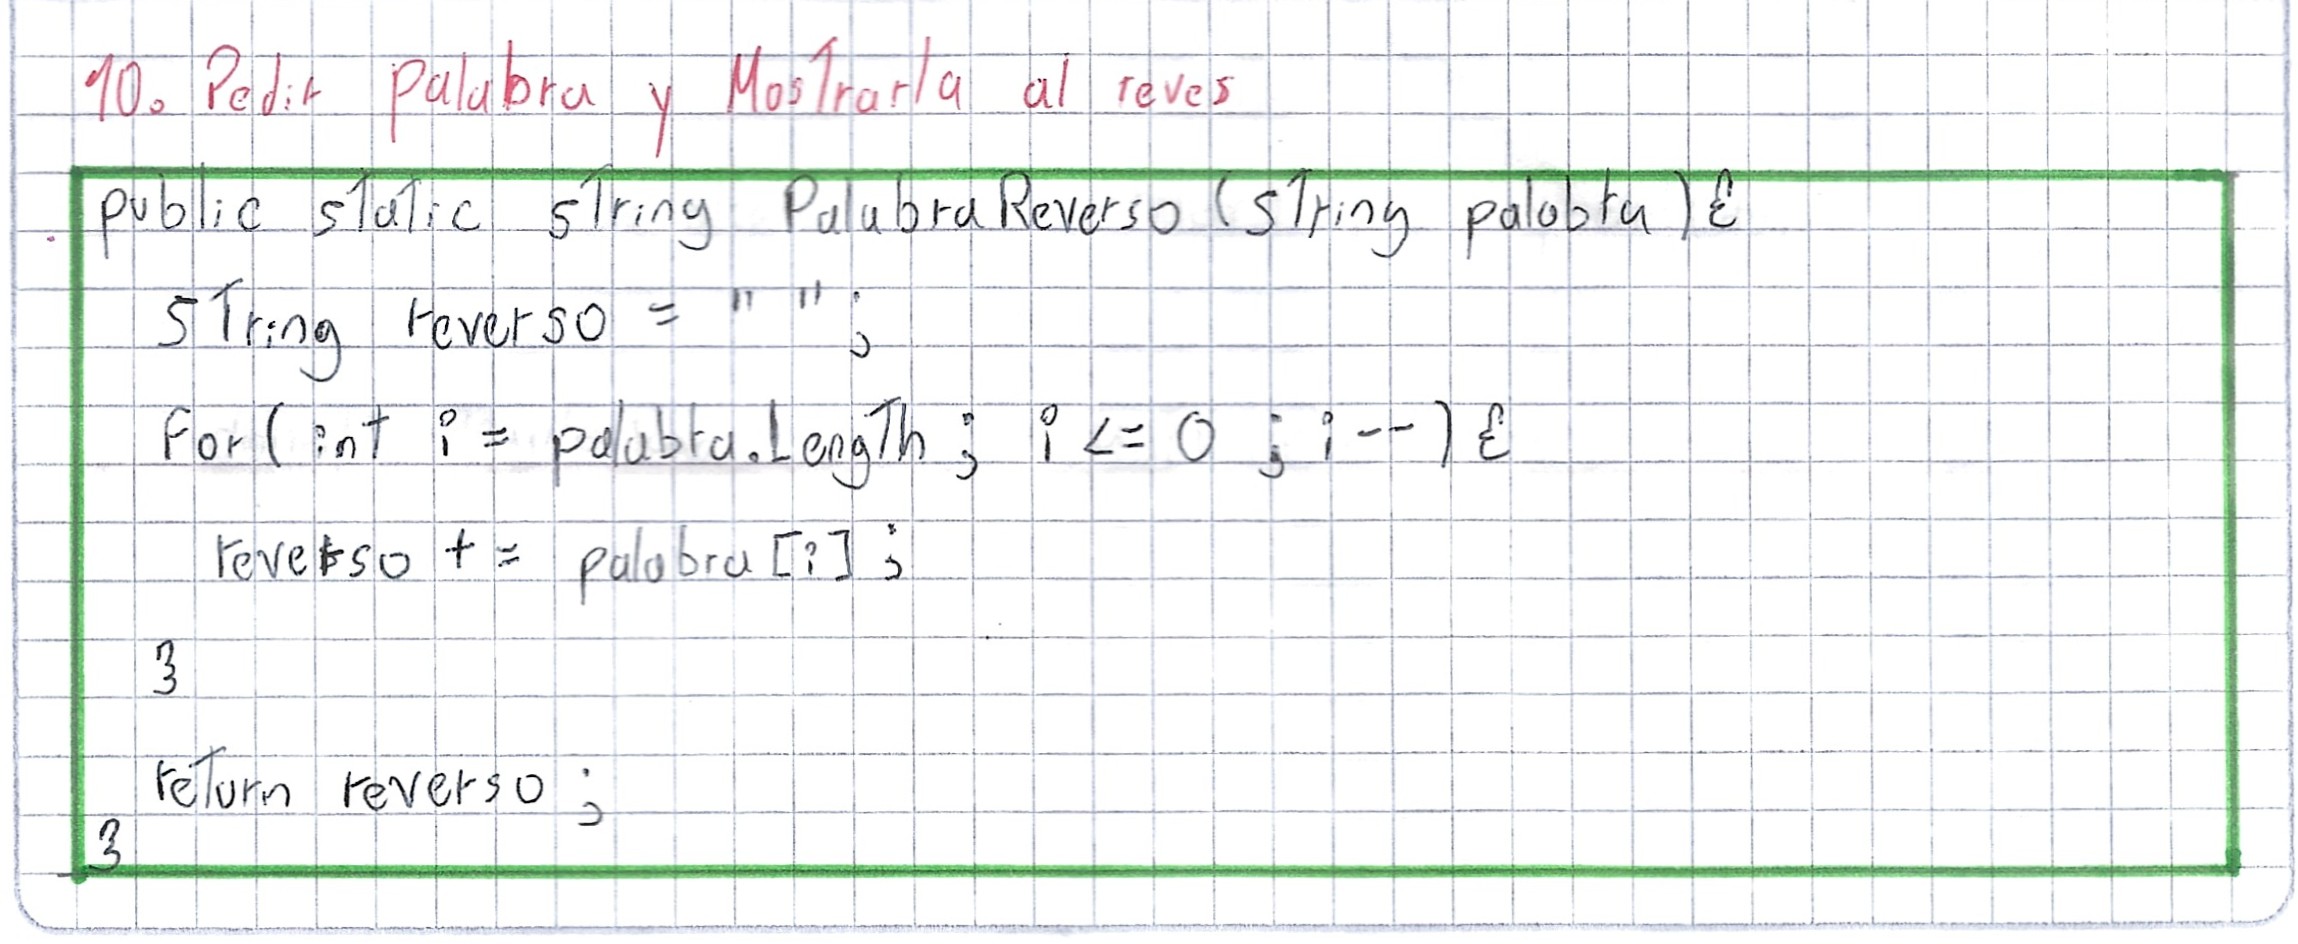 10. Pedir palabra y Mostrarla al reves
public static string PalabraReverso (string palabra) {
string reverso = " " ;
for ( int i = palabra.Length ; i <= 0 ; i -- ) {
reverso + = palabra [i] ;
}
return reverso ;
}